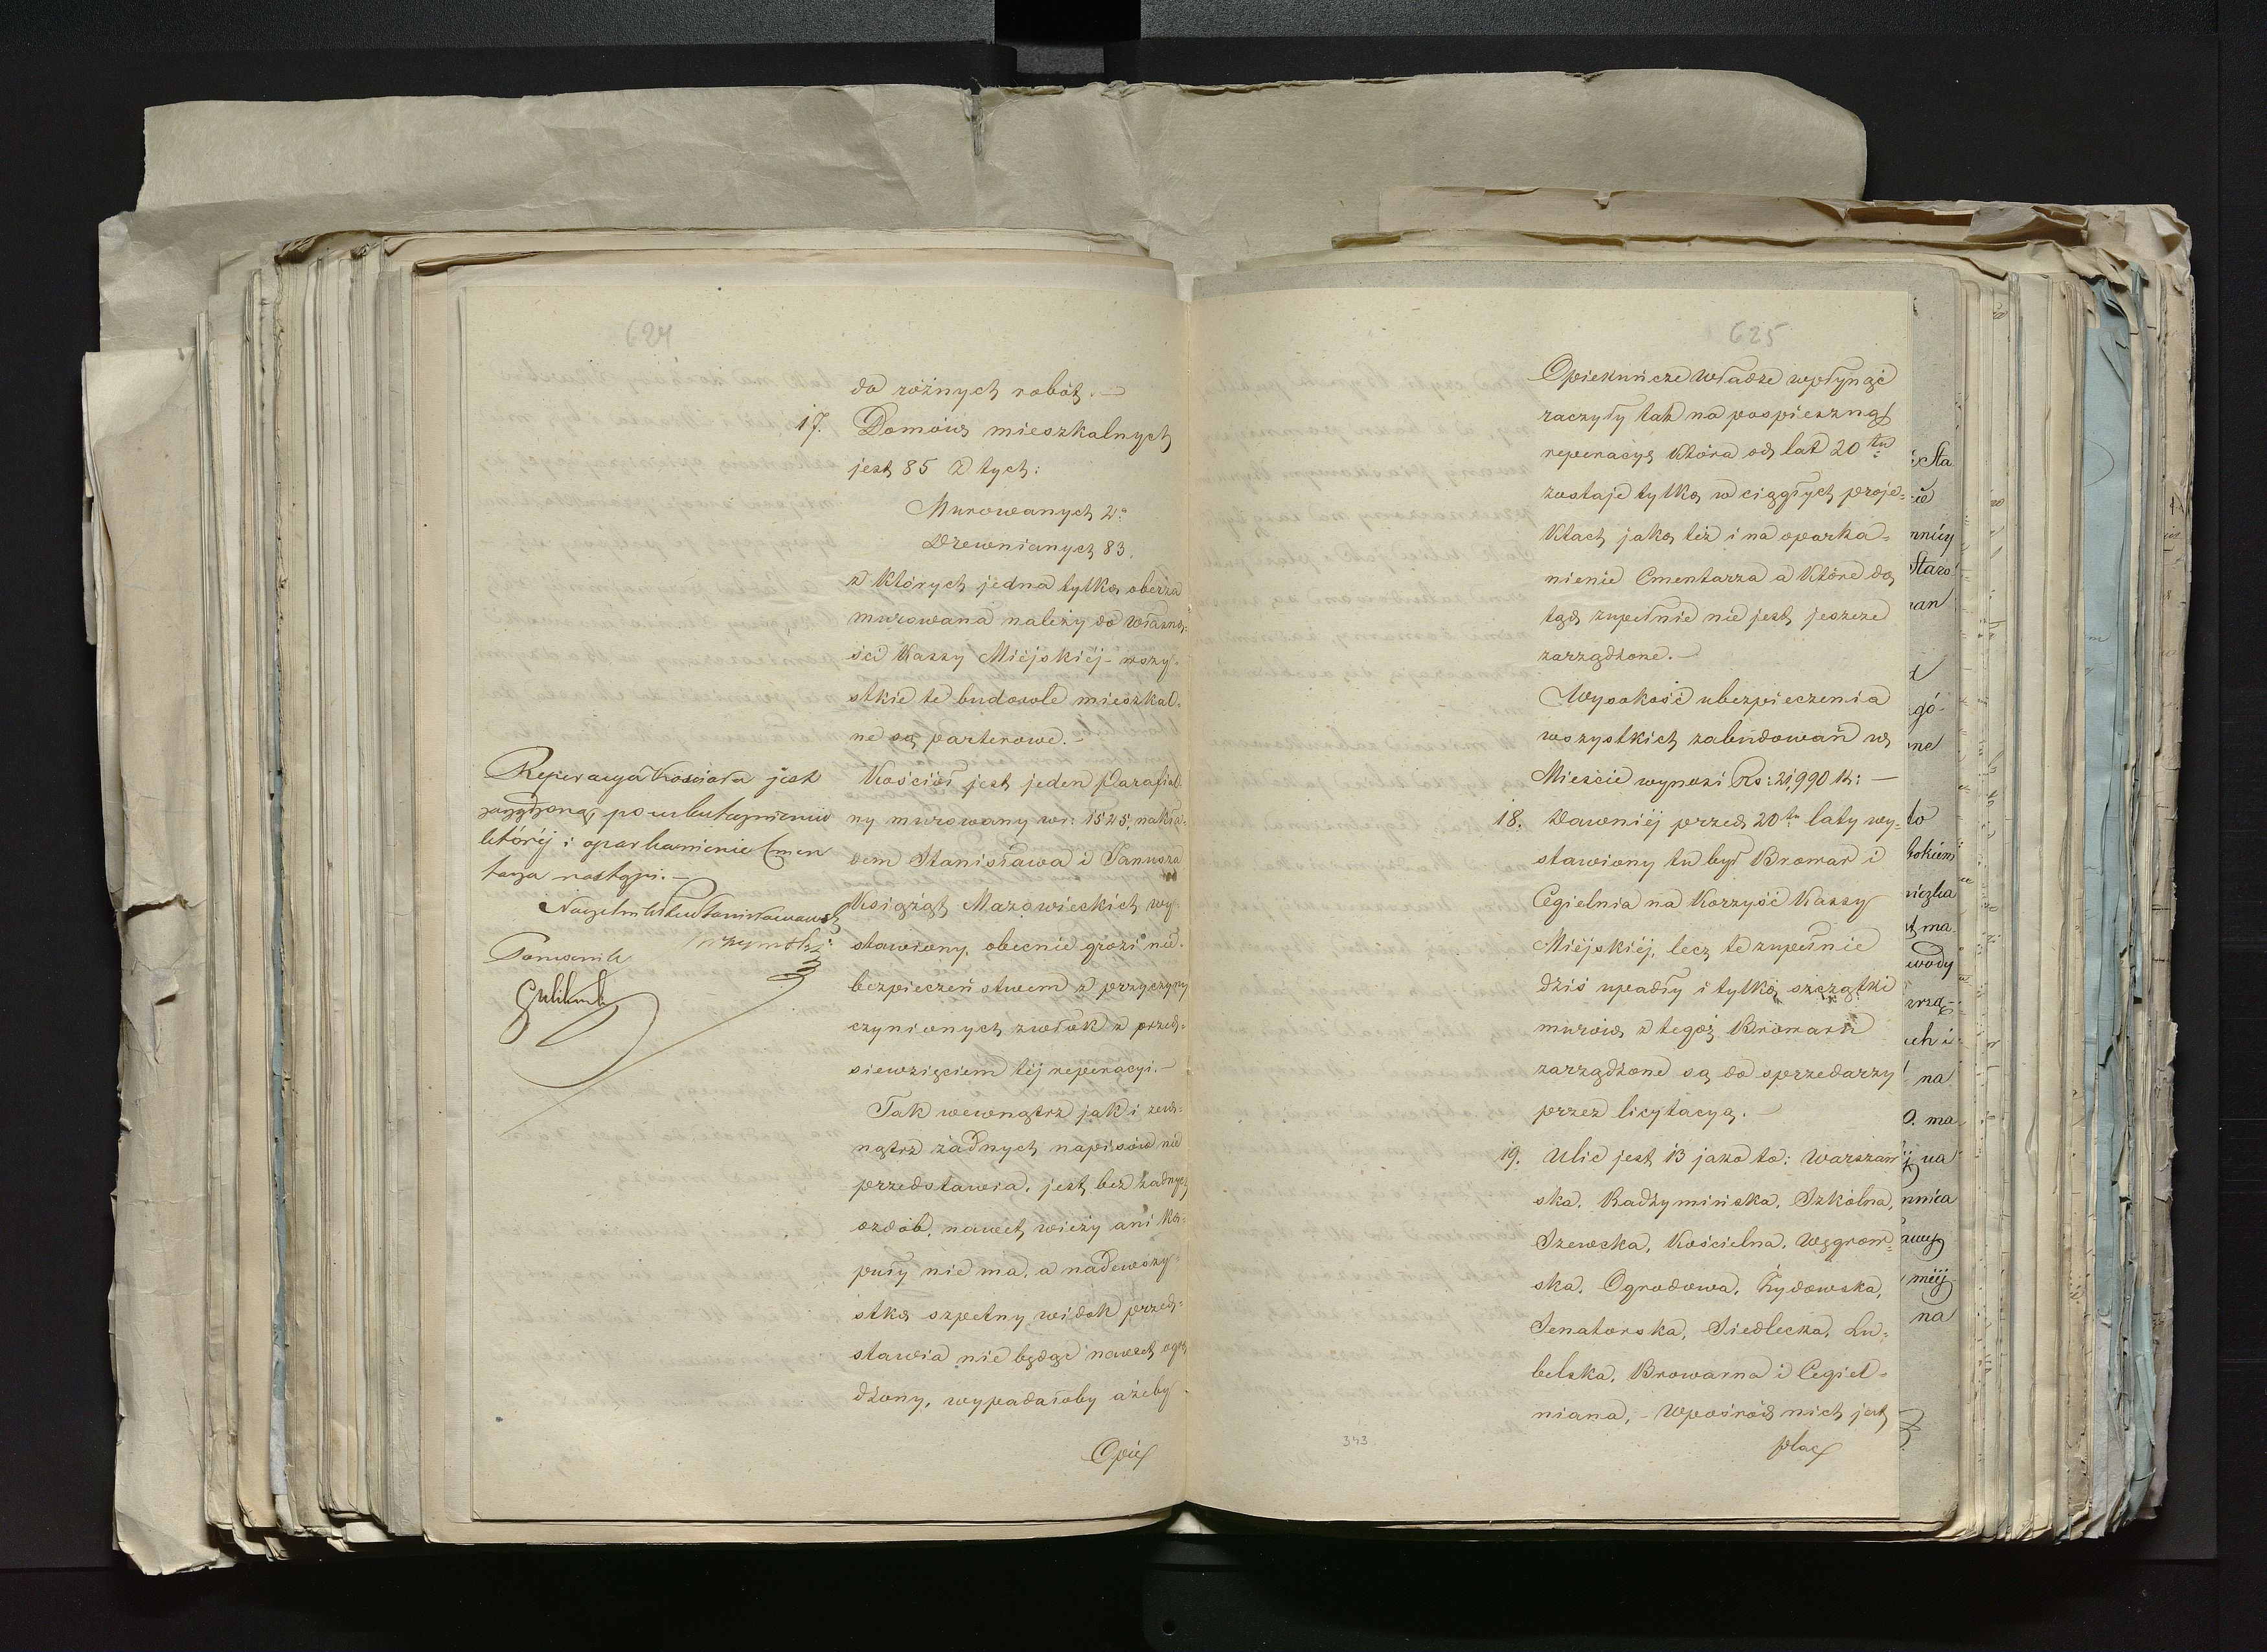 624
do różnych robót. —
17. Domów mieszkalnych
jest 85 z tych:
Murowanych 2.
Drewnianych 83.
z których jedna tylko oberża
murowana należy do własno-
ści Kassy Miejskiéj - wszy-
stkie te budowle mieszkal-
ne są parterowe. -
Kościół jest jeden Parafial-
ny murowany w r: 1525, nakła-
dem Stanisława i Janusza
Książąt Mazowieckich wy-
stawiony, obecnie grozi nie-
bezpieczeństwem z przyczyny
czynionych zwłok z przed-
sięwzięciem téj reperacyi. —
Tak wewnątrz jak i zew-
nątrz żadnych napisów nie
przedstawia, jest bez żadnych
ozdób, nawet wieży ani ko-
puły nie ma, a nadewszy-
stko szpetny widok przed-
stawia nie będąc nawet ogro
dzony, wypadałoby ażeby
Opie
Reperacya Kościoła jest
zarządzoną, po uskutecznieniu
której i oparkanienie Cmen
tarza nastąpi. —
Naczelnik Powiatu Stanisławowsk
Pomocnik
625
Opiekuńcze Władze wpłynąć
raczyły tak na pospieszną
reperacyę która od lat 20tu
zostaje tylko w ciągłych proje-
ktach jako też i na oparka-
nienie Cmentarza a które do
tąd zupełnie nie jest jeszcze
zarządzone. —
Wysokość ubezpieczenia
wszystkich zabudowań w
Mieście wynosi Rs: 21,990 k: —
18. Dawniéj przed 20tu laty wy-
stawiony tu był Browar i
Cegielnia na korzyść Kassy
Miéjskiéj, lecz te zupełnie
dziś upadły i tylko szczątki
murów z tegoż Browaru
zarządzone są do sprzedarzy
przez licytacyą. —
19. Ulic jest 13 jako to: Warszaw
ska, Radzymińska, Szkolna,
Szewcka, Kościelna, Węgrow-
ska, Ogrodowa, Żydowska,
Senatorska, Siedlecka, Lu-
belska, Browarna i Cegiel-
niana, - wpośród nich jest
plac
343